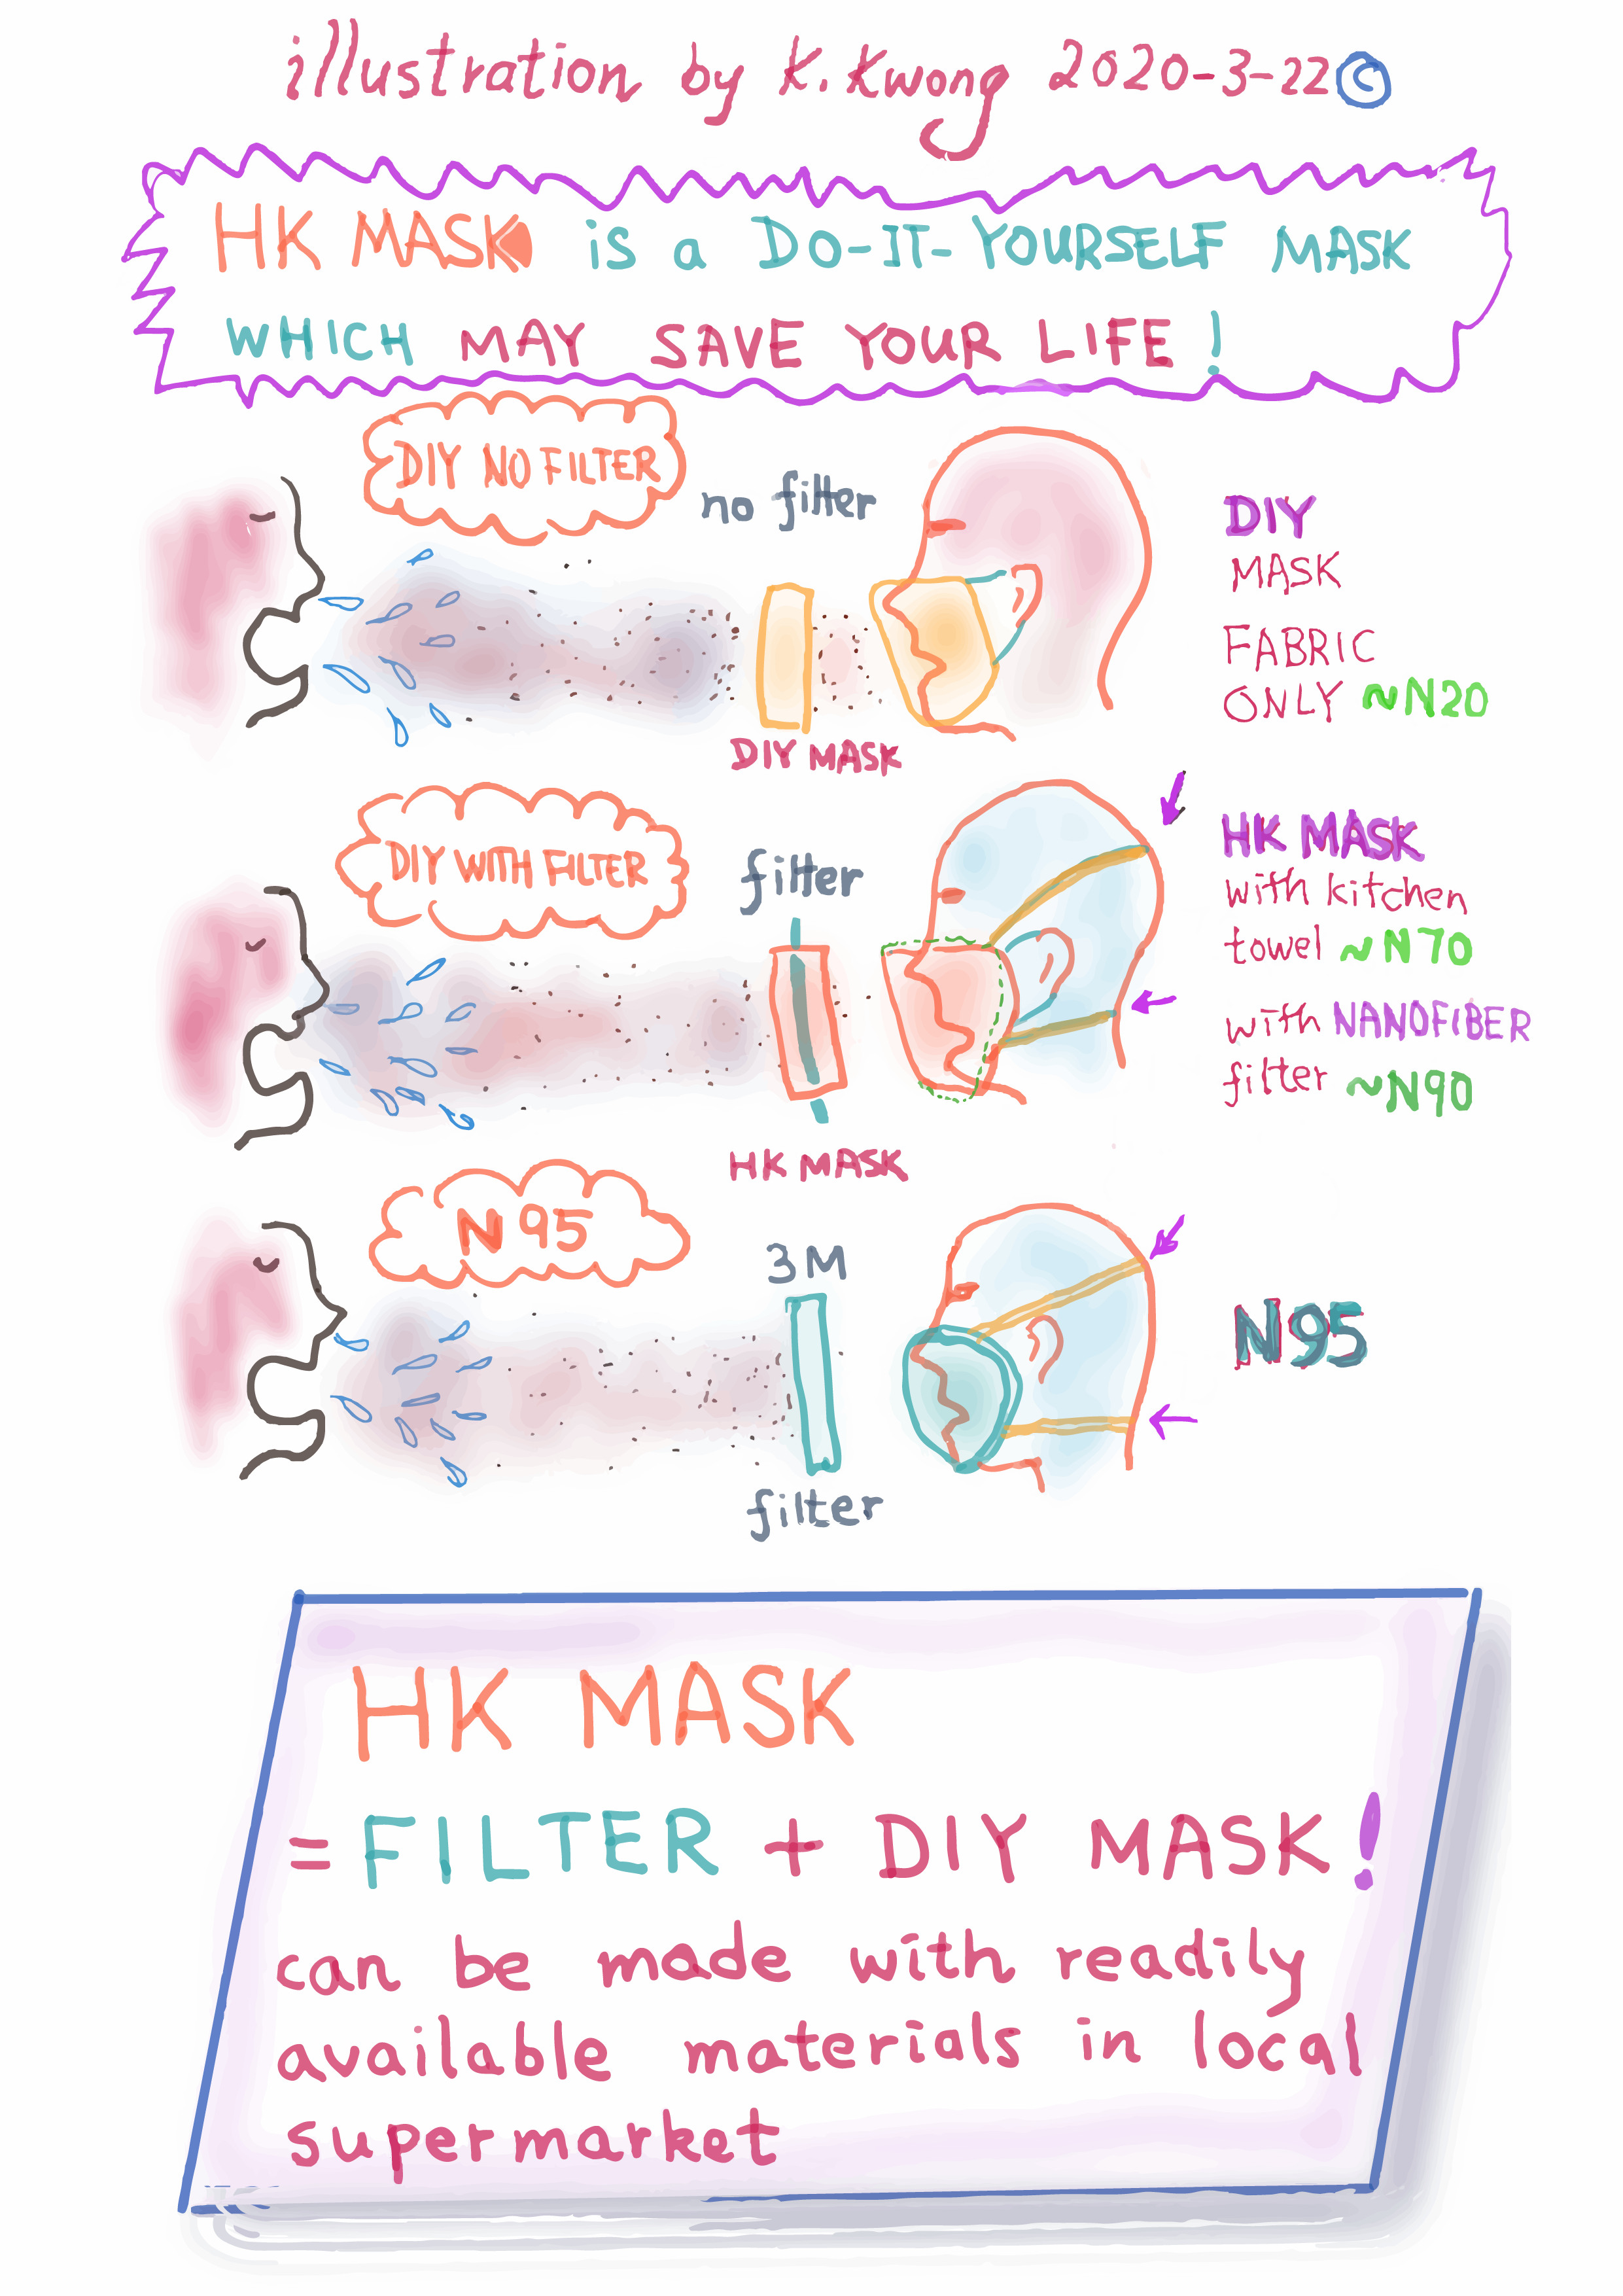 illustration by K. Kwong 2020-3-22 ©
HK MASK is a DO-IT-YOURSELF MASK
WHICH MAY SAVE YOUR LIFE !
DIY NO FILTER
no filter
DIY MASK
DIY
MASK
FABRIC
ONLY ~N20
DIY WITH FILTER
filter
HK MASK
HK MASK
with kitchen
towel ~N70
with NANOFIBER
filter ~N90
N95
3M
filter
N95
HK MASK
= FILTER + DIY MASK!
can be made with readily
available materials in local
supermarket